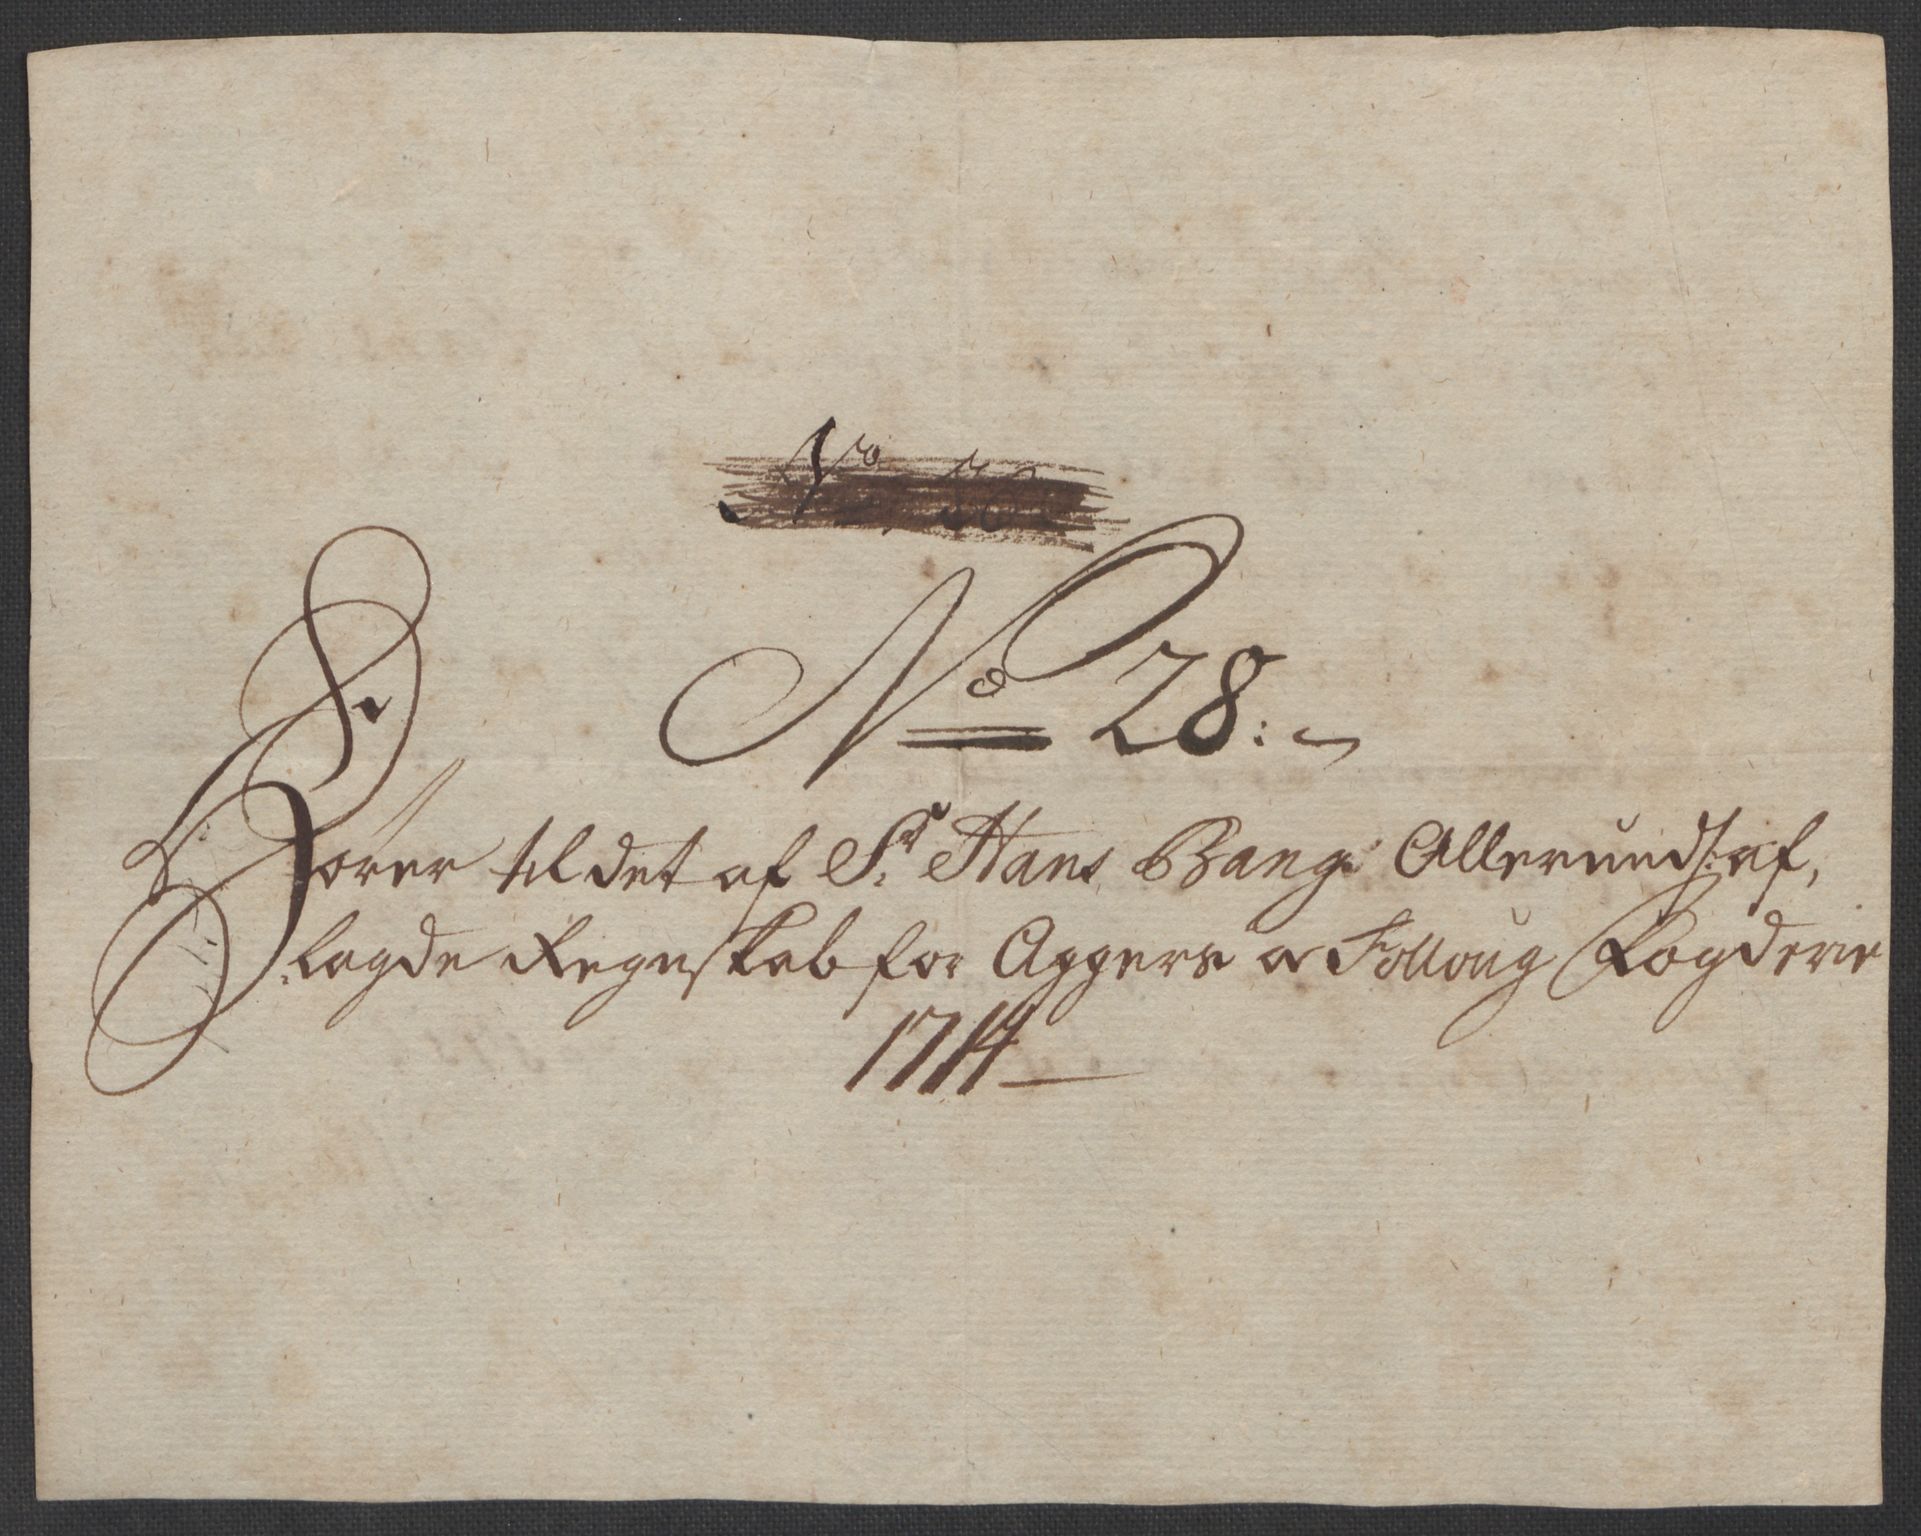 No
No 28:
Hörer til det af Sr Hans Bang Allerund: af,
lagde Regnskab for Aggers og Folloug Fogderie
1714